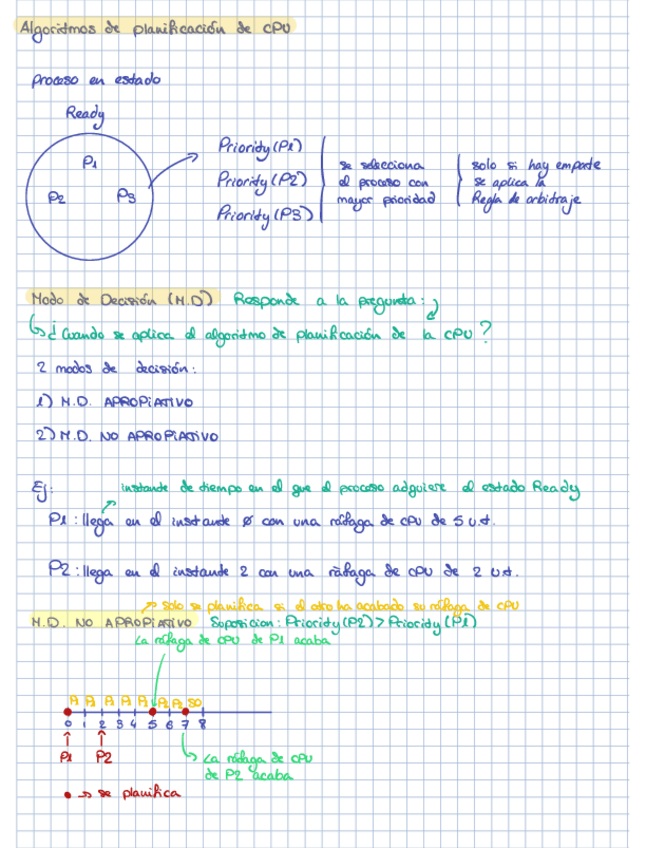 Algoritmos de planificación de CPU
proceso en estado
Ready
P1
P2 P3
Priority(P1)
Priority(P2)
Priority(P3)
se selecciona
el proceso con
mayor prioridad
solo si hay empate
se aplica la
Regla de arbitraje
Modo de Decisión (M.D) Responde a la pregunta:
¿Cuando se aplica el algoritmo de planificación de la CPU?
2 modos de decisión:
1) M.D. APROPIATIVO
2) M.D. NO APROPIATIVO
Ej: instante de tiempo en el que el proceso adquiere el estado Ready
P1: llega en el instante 0 con una ráfaga de CPU de 5 u.t.
P2: llega en el instante 2 con una ràfaga de CPU de 2 u.t.
solo se planifica si el otro ha acabado su ráfaga de CPU
M.D. NO APROPIATIVO Suposicion: Priority(P2) > Priority(P1)
La ráfaga de CPU de P1 acaba
P1 P1 P1 P1 P1 P2 P2 SO
0 1 2 3 4 5 6 7 8
P1 P2
La ráfaga de CPU
de P2 acaba
→ se planifica